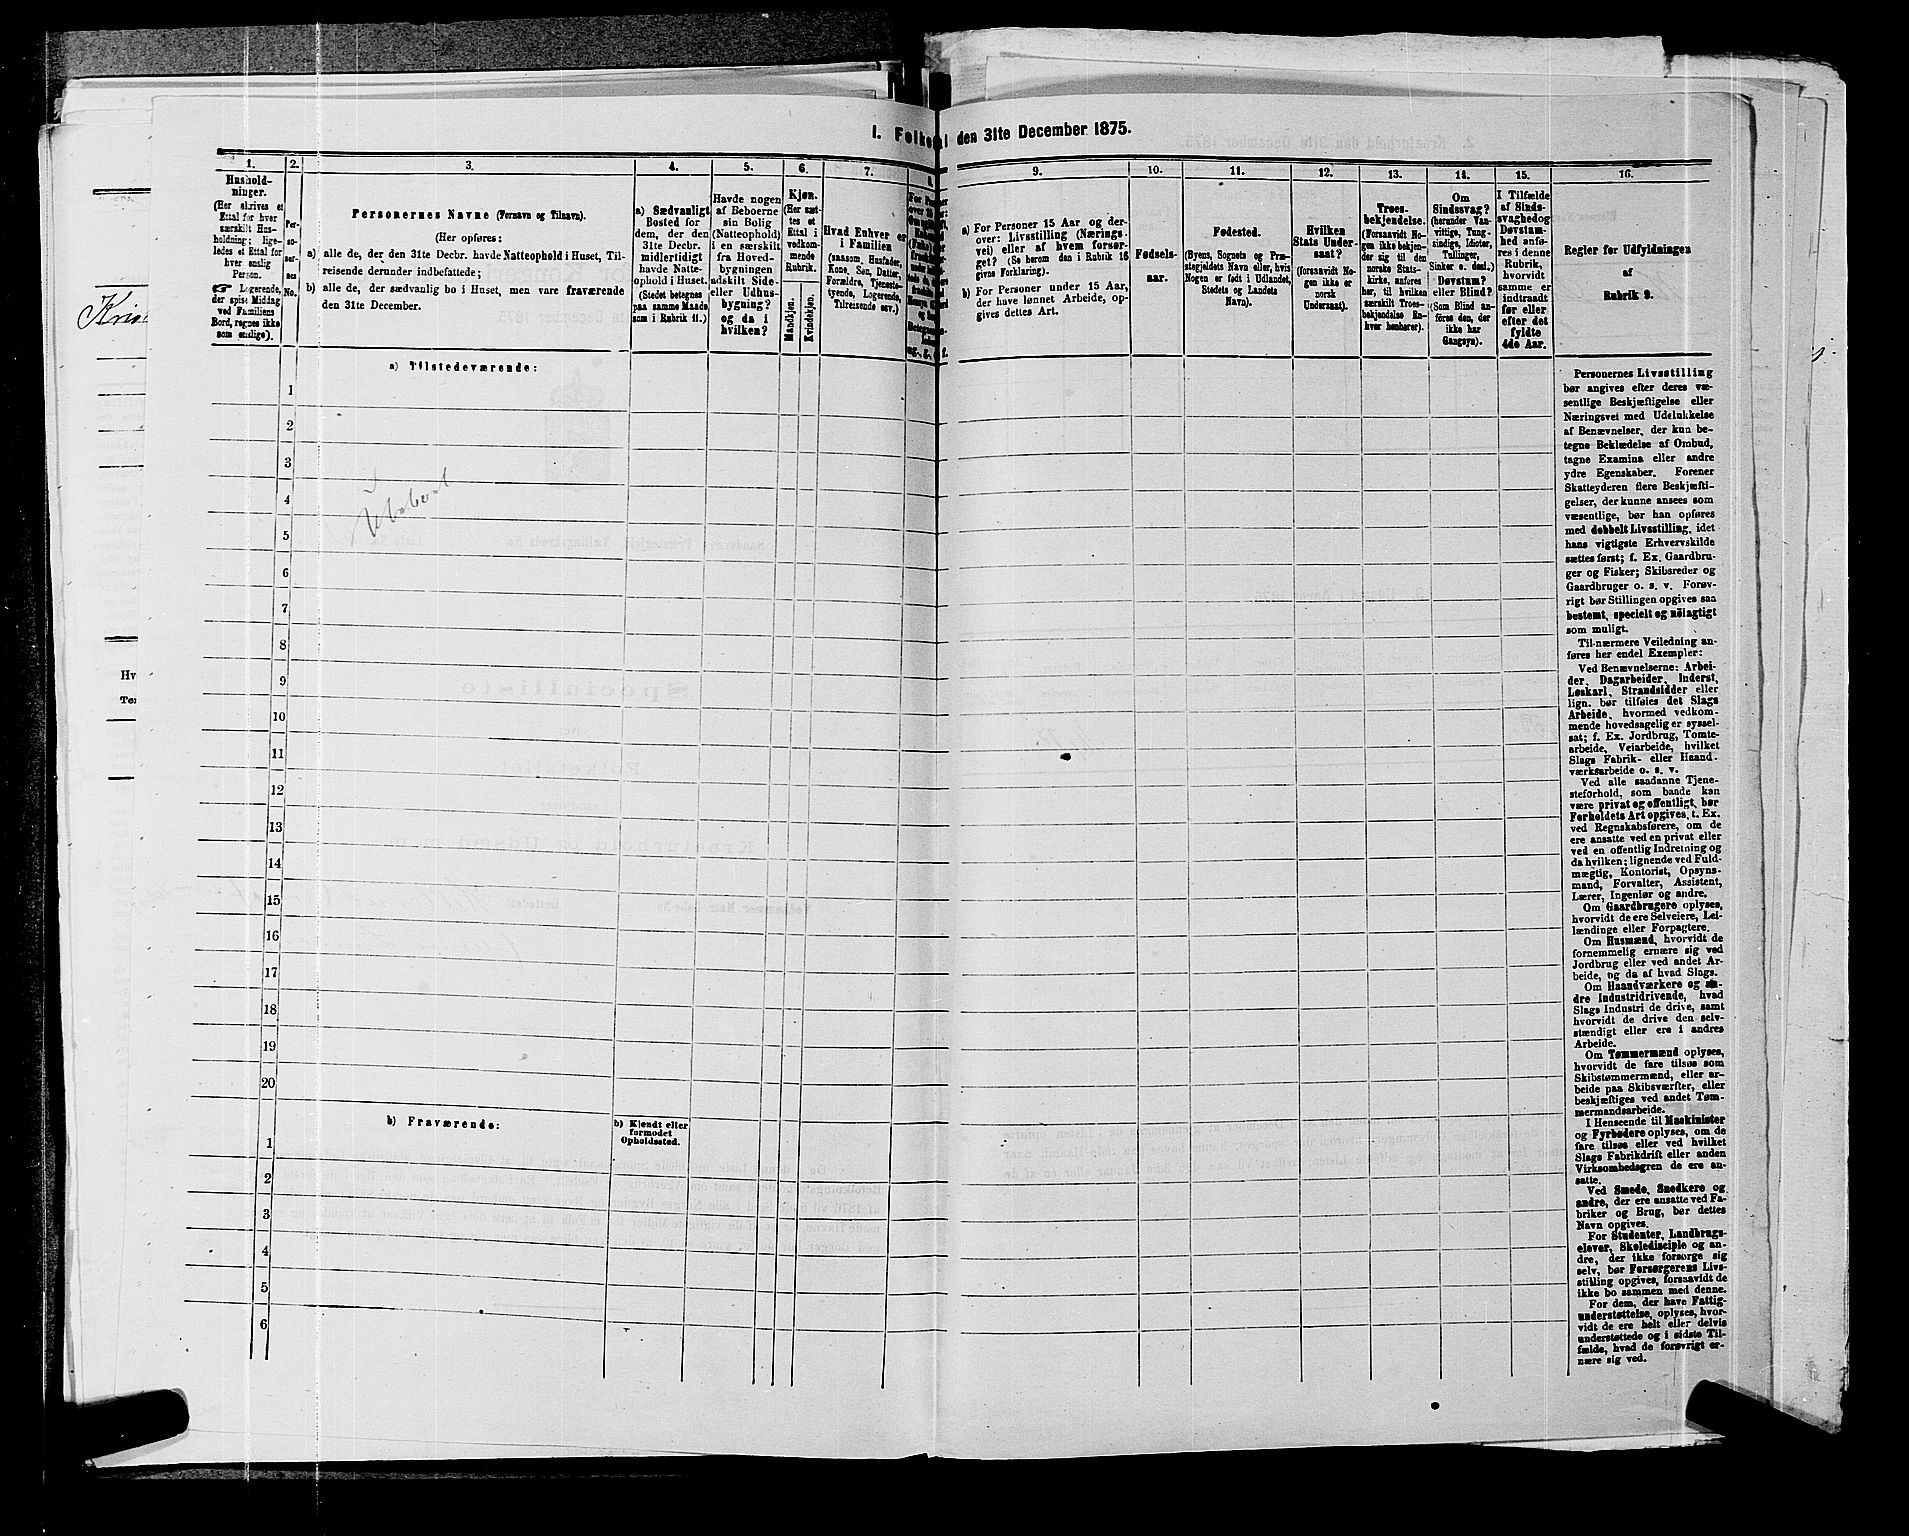 I. Folketal den 31te December 1875.
1.
2.
3.
4.
5.
6.
7.
8.
9.
10.
11.
12.
13.
14.
15.
16.
Hushold-
ninger.
(Her skrives et
Ettal for hver
særskilt Hus-
holdning; lige-
ledes et Ettal for
hver enslig
Person.
☞ Logerende,
der spise Middag
ved Familiens
Bord, regnes ikke
som enslige).
Per-
so-
ner-
nes
No.
Personernes Navne (Fornavn og Tilnavn).
(Her opføres:
a) alle de, der den 31te Decbr. havde Natteophold i Huset, Til-
reisende derunder indbefattede;
b) alle de, der sædvanlig bo i Huset, men vare fraværende
den 31te December.
a) Sædvanligt
Bosted for
dem, der den
31te Decbr.
midlertidigt
havde Natte-
ophold i Huset.
(Stedet betegnes
paa samme Maade
som i Rubrik 11.)
Havde nogen
af Beboerne
sin Bolig
(Natteophold)
i en særskilt
fra Hoved-
bygningen
adskilt Side-
eller Udhus-
bygning?
og da i
hvilken?
Kjøn.
(Her sæt-
tes et
Ettal i
vedkom-
mende
Rubrik.
Mandkjøn.
Kvindekjøn.
Hvad Enhver er
i Familien
(saasom, Husfader,
Kone, Søn, Datter,
Forældre, Tjeneste-
tyende, Logerende,
Tilreisende osv.)
a) For Personer 15 Aar og der-
over: Livsstilling (Nærings-
vei) eller af hvem forsør-
get? (Se herom den i Rubrik 16
givne Forklaring).
b) For Personer under 15 Aar,
der have lønnet Arbeide, op-
gives dettes Art.
Fødsels-
aar.
Fødested.
(Byens, Sognets og Præ-
stegjeldets Navn eller, hvis
Nogen er født i Udlandet,
Stedets og Landets
Navn).
Hvilken
Stats Under-
saat?
(forsaavidt No-
gen ikke er
norsk
Undersaat).
Troes-
bekjendelse.
(Forsaavidt No-
gen ikke bekjen-
der sig til den
norske Stats-
kirke, anføres
her, til hvilken
særskilt Troes-
bekjendelse En-
hver henhører).
Om
Sindssvag?
(herunder Van-
vittige, Tung-
sindige, Idioter,
Tullinger,
Sinker o. desl.)
Døvstum?
eller Blind?
(Som Blind an-
føres den, der
ikke har
Gangsyn).
I Tilfælde
af Sinds-
svaghed og
Døvstum-
hed anfø-
res i denne
Rubrik,
hvorvidt
samme er
indtraadt
før eller
efter det
fyldte
4de Aar.
Regler for Udfyldningen
af
Rubrik 9.
a) Tilstedeværende:
1
2
3
4
5
6
7
8
9
10
11
12
13
14
15
16
17
18
19
20
Ubeboet
b) Fraværende:
b) Kjendt eller
formodet
Opholdssted.
1
2
3
4
5
6
Personernes Livsstilling
bør angives efter deres væ-
sentlige Beskjæftigelse eller
Næringsvei med Udelukkelse
af Benævnelser, der kun be-
tegne Beklædelse af Ombud,
tagne Examina eller andre
ydre Egenskaber. Forener
Skatteyderen flere Beskjæfti-
gelser, der kunne ansees som
væsentlige, bør han opføres
med dobbelt Livsstilling, idet
hans vigtigste Erhvervskilde
sættes først; f. Ex. Gaardbru-
ger og Fisker; Skibsreder og
Gaardbruger o. s. v. Forøv-
rigt bør Stillingen opgives saa
bestemt, specielt og nøiagtigt
som muligt.
Til nærmere Veiledning an-
føres her endel Exempler:
Ved Benævnelserne: Arbei-
der, Dagarbeider, Inderst,
Løskarl, Strandsidder eller
lign. bør tilføies det Slags
Arbeide, hvormed vedkom-
mende hovedsagelig er syssel-
sat; f. Ex. Jordbrug, Tomte-
arbeide, Veiarbeide, hvilket
Slags Fabrik- eller Haand-
værksarbeide o. s. v.
Ved alle saadanne Tjene-
steforhold, som baade kan
være privat og offentligt, bør
Forholdets Art opgives, t. Ex.
ved Regnskabsførere, om de
ere ansatte ved en privat eller
ved en offentlig Indretning og
da hvilken; lignende ved Fuld-
mægtig, Kontorist, Opsyns-
mand, Forvalter, Assistent,
Lærer, Ingeniør og andre.
Om Gaardbrugere oplyses,
hvorvidt de ere Selveiere, Lei-
lændinge eller Forpagtere.
Om Husmænd, hvorvidt de
fornemmelig ernære sig ved
Jordbrug eller ved andet Ar-
beide, og da af hvad Slags.
Om Haandværkere og an-
dre Industridrivende, hvad
Slags Industri de drive, samt
hvorvidt de drive den selv-
stændigt eller ere i andres
Arbeide.
Om Tømmermænd oplyses,
hvorvidt de fare tilsøs som
Skibstømmermænd, eller ar-
beide paa Skibsværfter, eller
beskjæftiges ved andet Tøm-
mermandsarbeide.
I Henseende til Maskinister
og Fyrbødere oplyses, om de
fare tilsøs eller ved hvilket
Slags Fabrikdrift eller anden
Virksomhedsgren de ere an-
satte.
Ved Smede, Snedkere og
andre, der ere ansatte ved Fa-
briker og Brug, bør dettes
Navn opgives.
For Studenter, Landbrugs-
elever, Skoledisciple og an-
dre, der ikke forsørge sig
selv, bør Forsørgerens Livs-
stilling opgives, forsaavidt de
ikke bo sammen med denne.
For dem, der have Fattig-
understøttelse, oplyses, hvor-
vidt de ere helt eller delvis
understøttede og i sidste Til-
fælde, hvad de forøvrigt er-
nære sig ved.